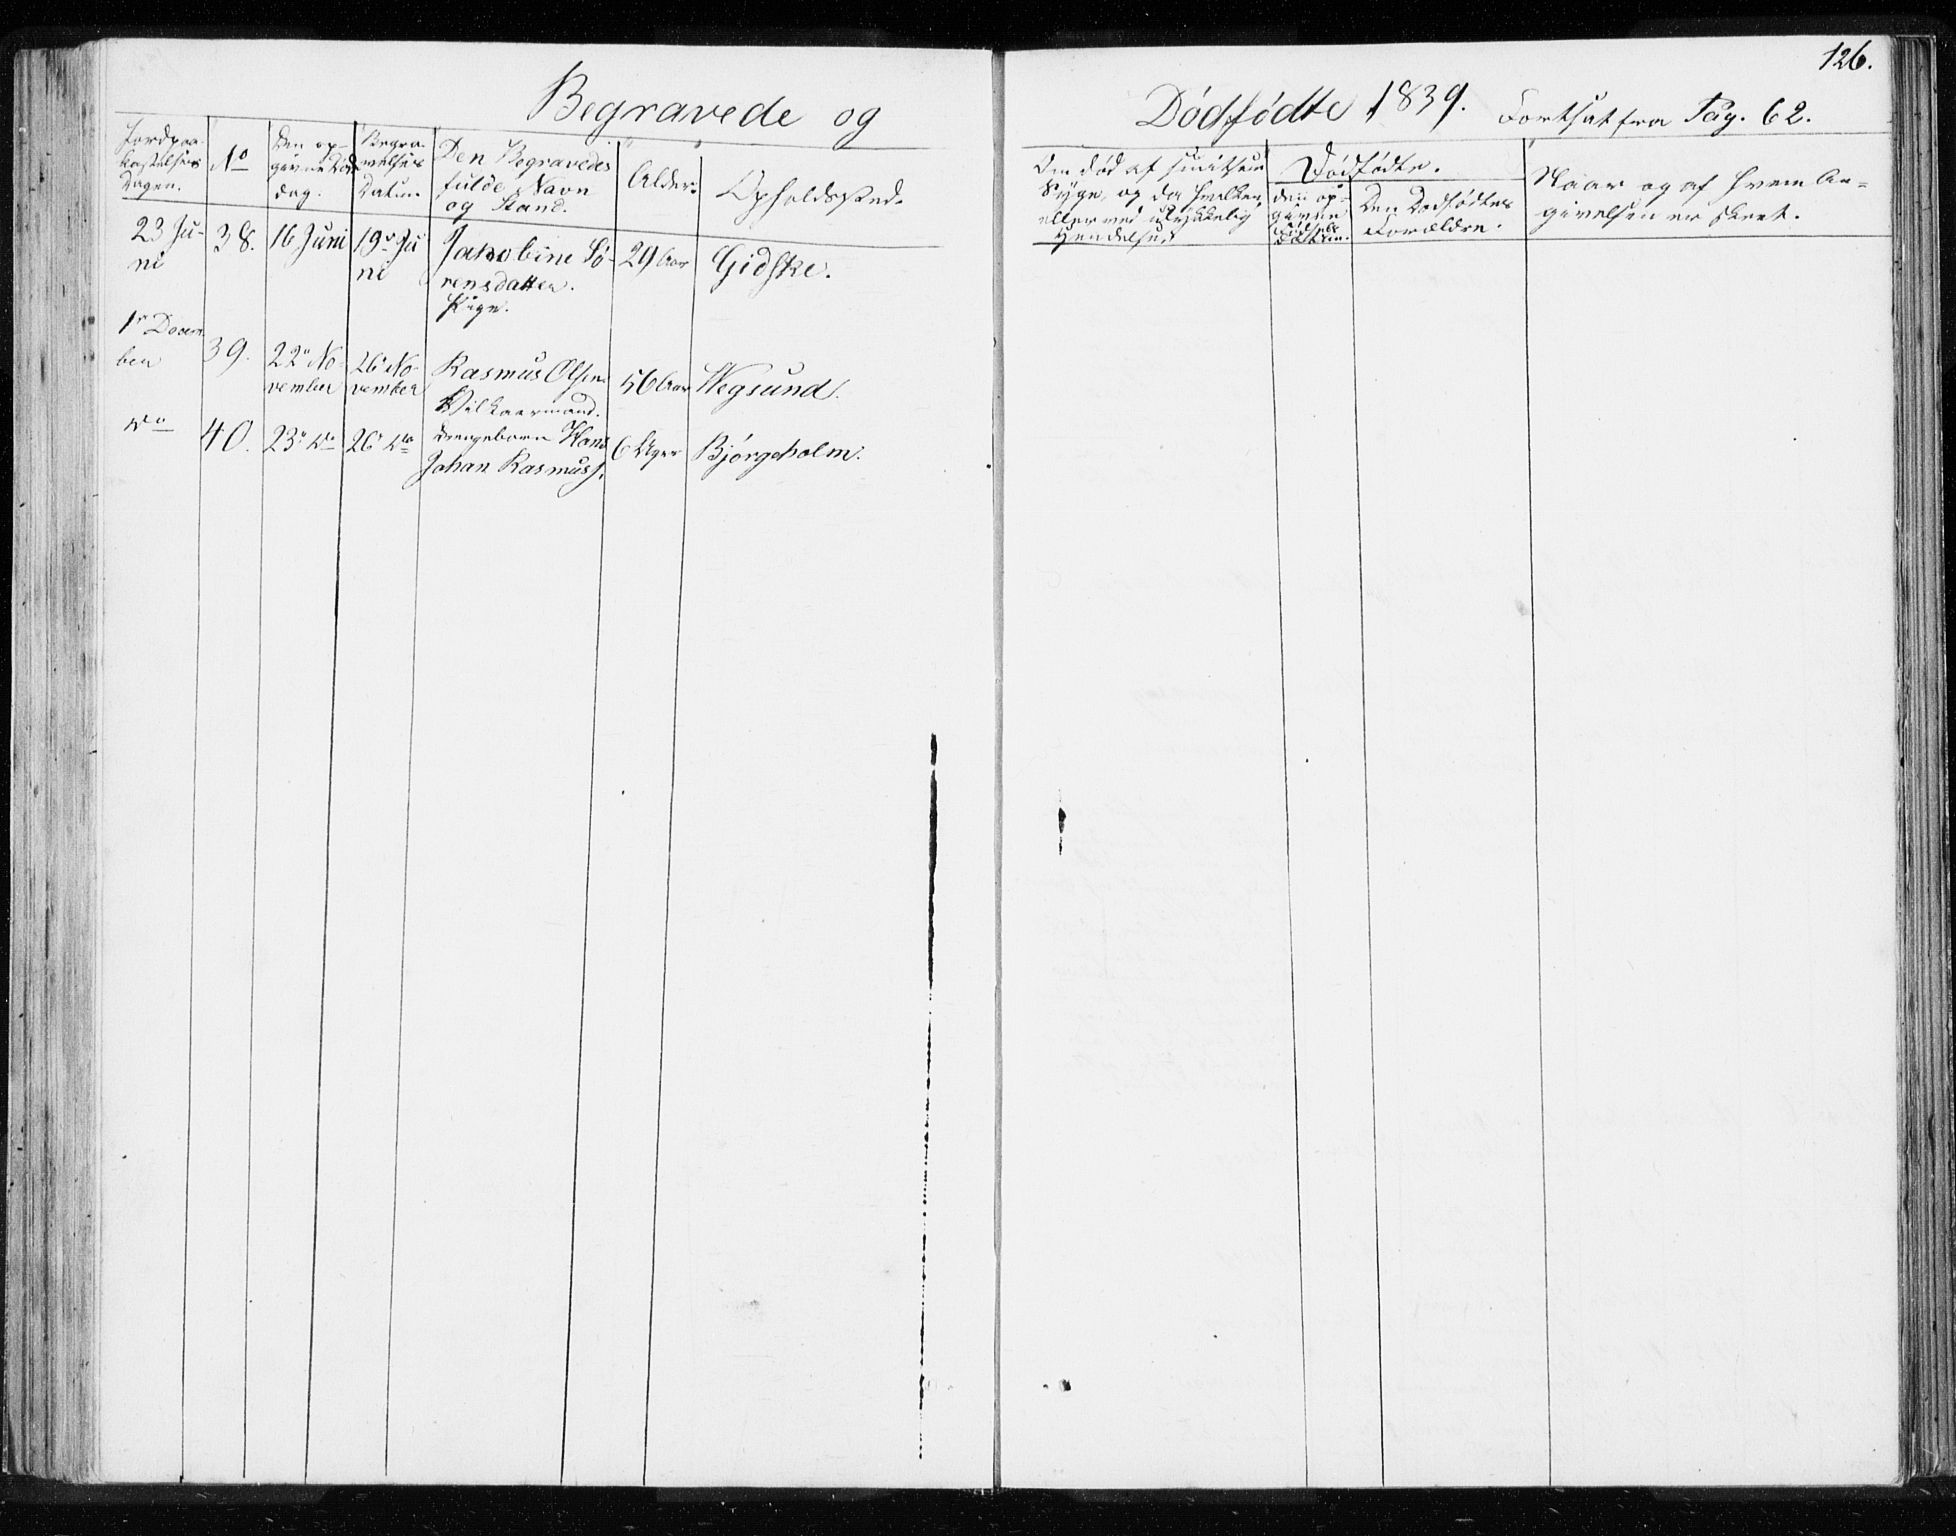 126.
Begravede og Dødfødte 1839. Fortsat fra Pag. 62.
Jordpaa-
kastelses
Dagen.
No
Den op-
givne Døds
dag.
Begra-
velses
Datum
Den Begravedes
fulde Navn
og Stand.
Alder.
Opholdssted.
Om død af smitsom
Syge, og da hvilken
eller ved ulykkelig
Hendelse.
Dødfødte.
den op-
givne
Fødsels
Datum.
Den Dødfødtes
Forældre.
Naar og af hvem An-
givelsen er skeet.
23 Ju-
ni
38.
16 Juni
19 Ju
ni
Jakobine Sø-
rensdatter.
Pige.
29 Aar
Gidske.
1 Decem
ber
39.
22 No-
vember
26 No-
vember
Rasmus Olsen
Vilkaarmand.
56 Aar
Vegsund.
Do
40.
23 Do
26 Do
Drengebarn Hans
Johan Rasmuss.
6 Uger
Bjørgeholm.